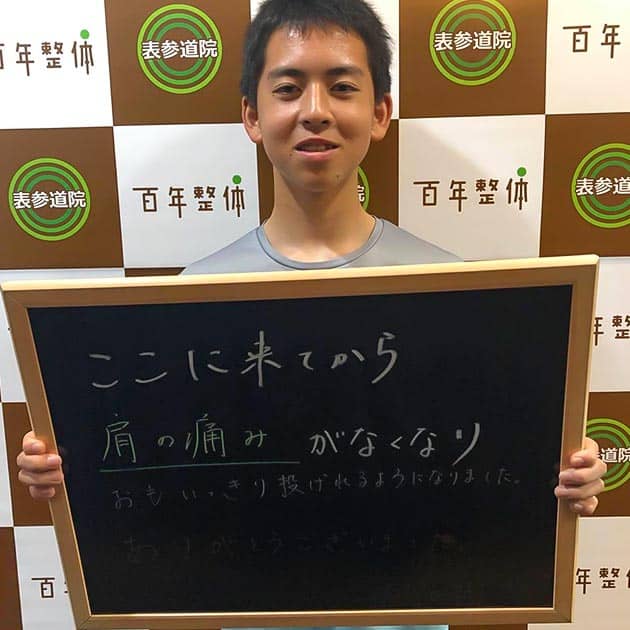 百年整体
表参道院
表参道院
百年整体
表参道院
百年整体
百年整体
表参道院
ここに来てから
肩の痛みがなくなり
おもいっきり投げれるようになりました。
ありがとうございました。
年整
表参道院
百
年整